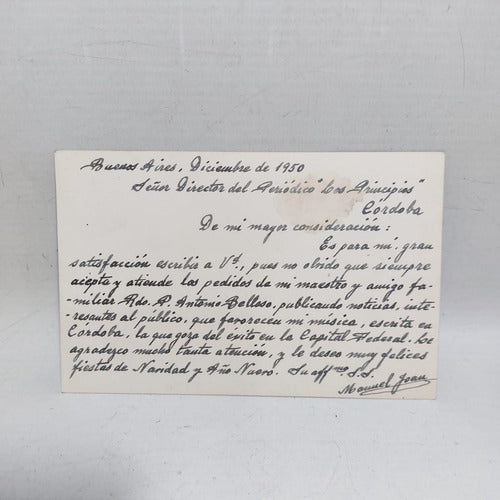 Buenos Aires, Diciembre de 1950
Señor Director del Periódico "Los Principios"
Córdoba
De mi mayor consideración:
Es para mí, gran
satisfacción escribir a Vd., pues no olvido que siempre
acepta y atiende los pedidos de mi maestro y amigo fa-
miliar Rdo. P. Antonio Belloso, publicando noticias, inte-
resantes al público, que favorecen mi música, escrita en
Córdoba, la que goza del éxito en la Capital Federal. Le
agradezco mucho tanta atención, y le deseo muy felices
fiestas de Navidad y Año Nuevo. Su affmo. S.S.
Manuel Joan